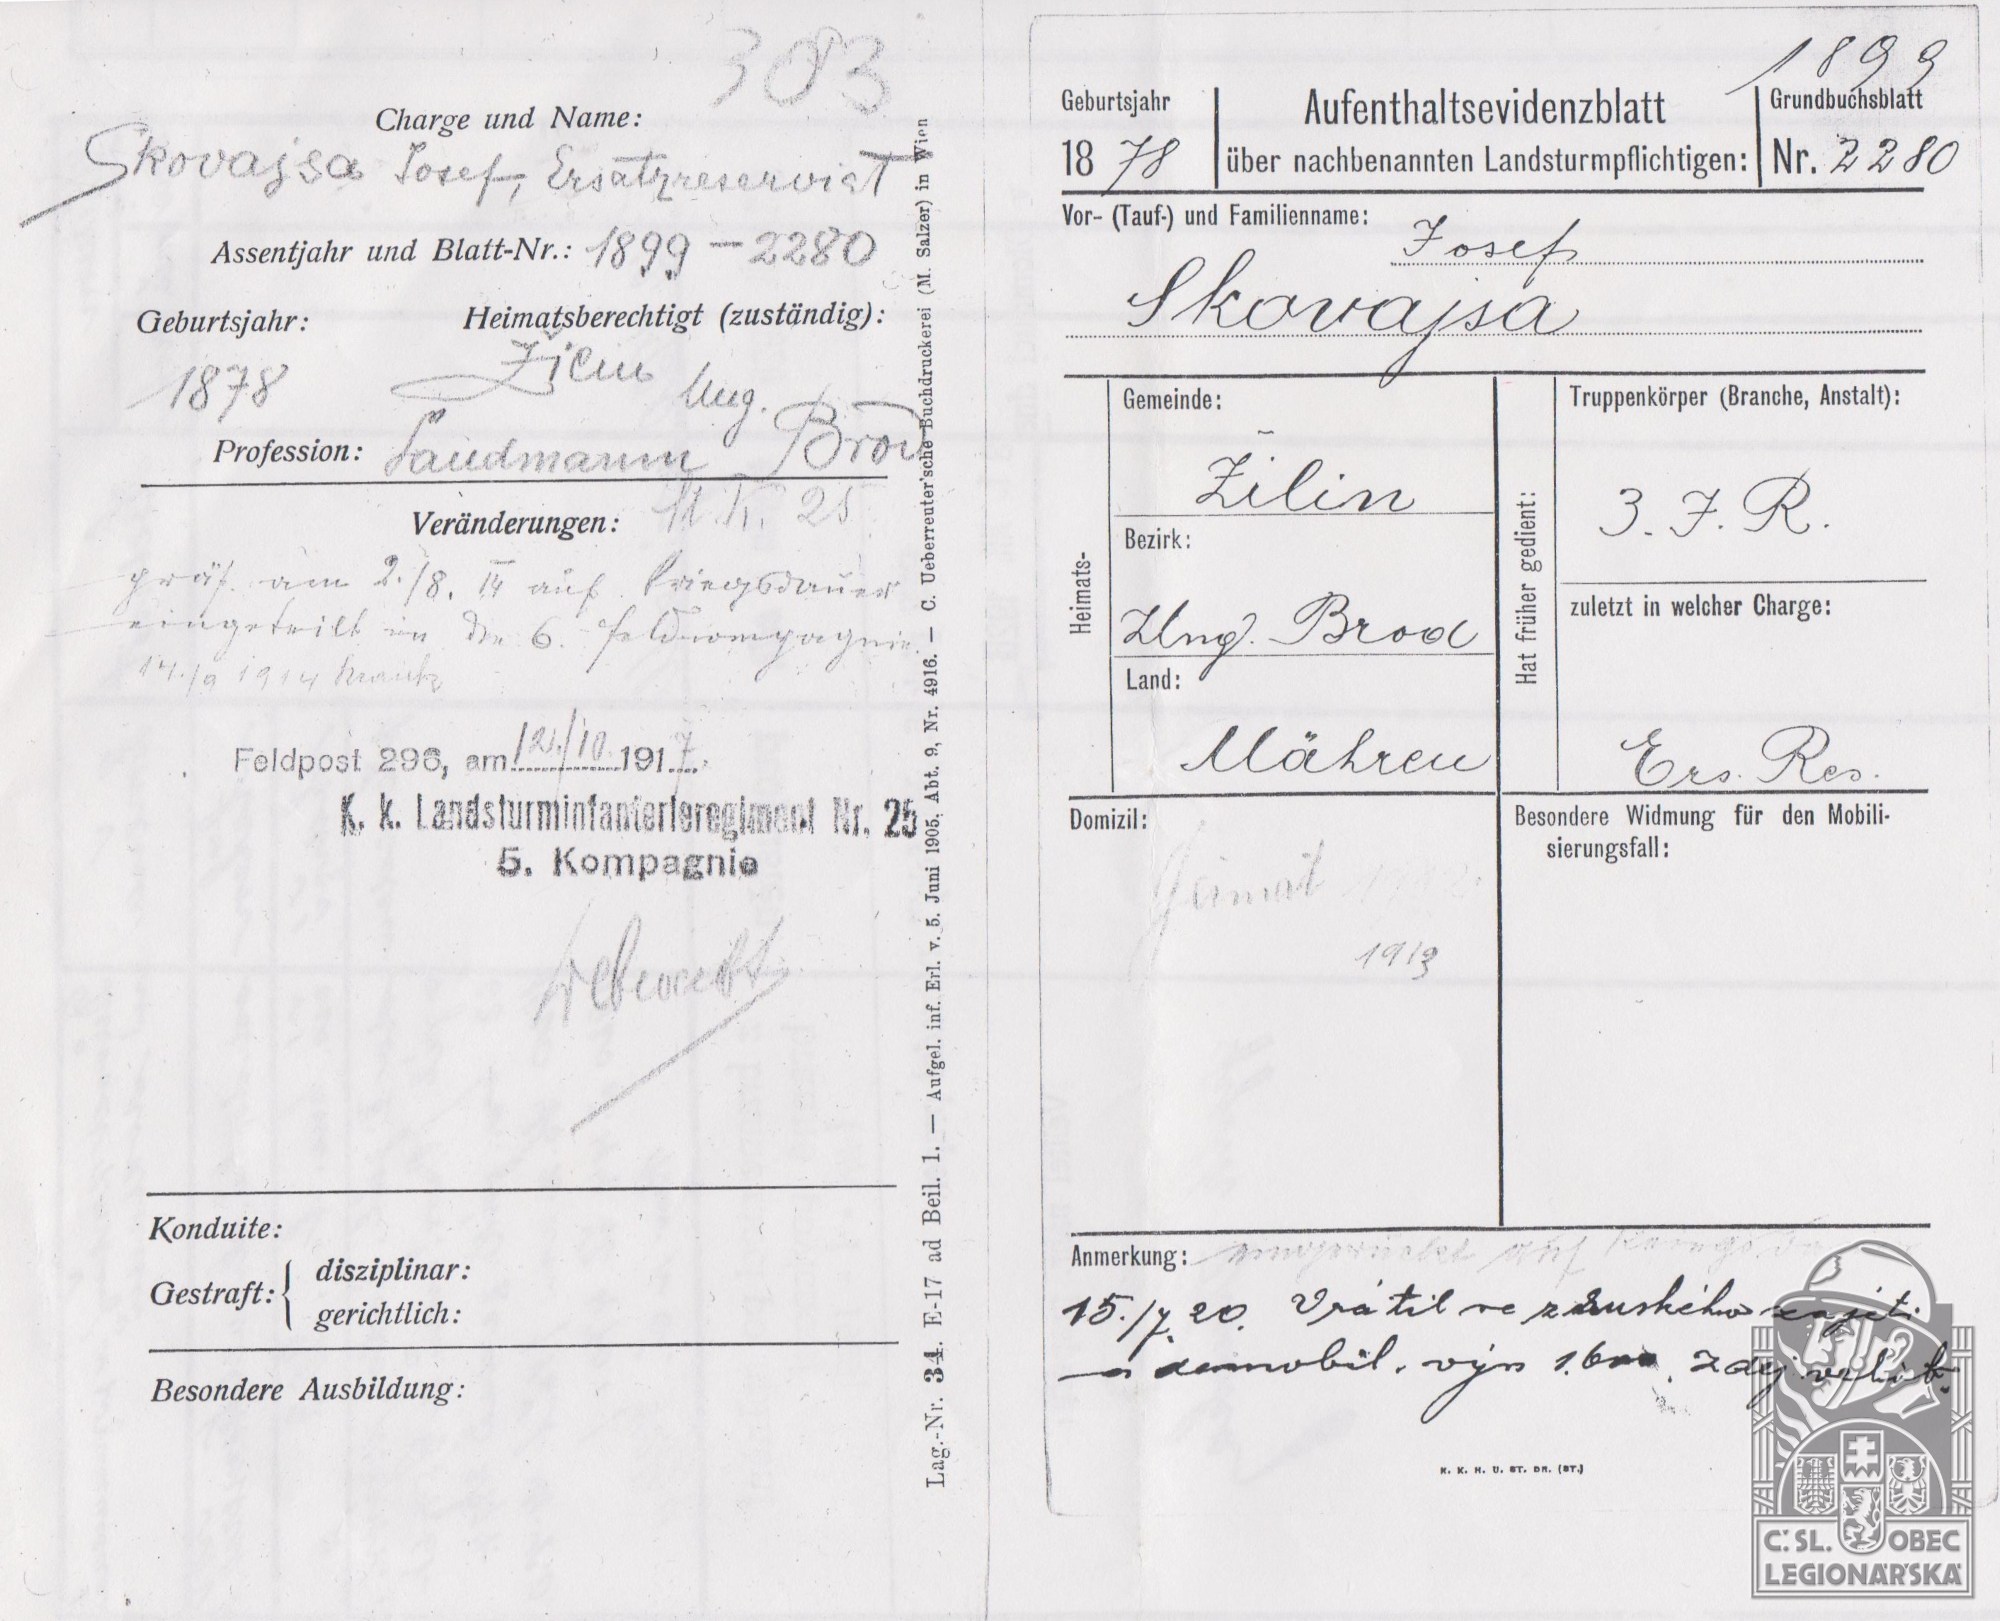 303
Charge und Name:
Skovajsa Josef, Ersatzreservist
Assentjahr und Blatt-Nr.: 1899 – 2280
Geburtsjahr: Heimatsberechtigt (zuständig):
1878 Žilin Ung. Brod
Profession: Landmann
Veränderungen: 25
präs. am 2./8. 14 auf Kriegsdauer
eingeteilt in die 6. Feldkompagnie
14./9 1914
Feldpost 296, am 12./10. 1917
K. k. Landsturminfanterieregiment Nr. 25
5. Kompagnie
Konduite:
Gestraft: disziplinar:
gerichtlich:
Besondere Ausbildung:
Lag.-Nr. 34. E-17 ad Beil. 1. — Aufgel. inf. Erl. v. 5. Juni 1905, Abt. 9, Nr. 4916. — C. Ueberreuter'sche Buchdruckerei (M. Salzer) in Wien
1899
Geburtsjahr 1878
Aufenthaltsevidenzblatt
über nachbenannten Landsturmpflichtigen:
Grundbuchsblatt
Nr. 2280
Vor- (Tauf-) und Familienname: Josef
Skovajsa
Heimats-
Gemeinde:
Žilin
Bezirk:
Ung. Brod
Land:
Mähren
Hat früher gedient:
Truppenkörper (Branche, Anstalt):
3. J. R.
zuletzt in welcher Charge:
Ers. Res.
Domizil:
Heimat
1913
Besondere Widmung für den Mobili-
sierungsfall:
Anmerkung: eingerückt auf
15./7. 20. Vrátil se z ruského zajet.
a demobil.
K. K. H. U. ST. DR. (ST.)
Č.SL. OBEC
LEGIONÁŘSKÁ